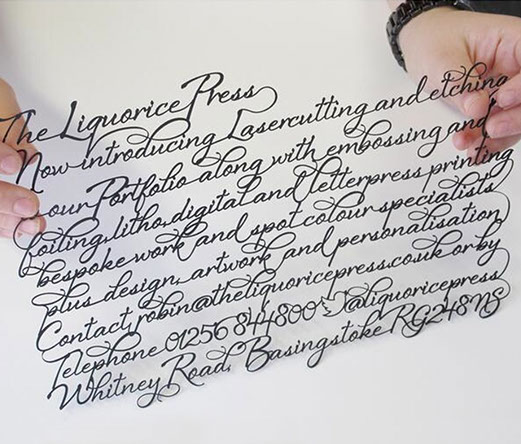 The Liquorice Press
Now introducing Lasercutting and etching
to our Portfolio along with embossing and
foiling, litho, digital and letterpress printing
bespoke work and spot colour specialists
plus design, artwork and personalisation
Contact robin@theliquoricepress.co.uk or by
Telephone 01256 844800 @liquoricepress
Whitney Road, Basingstoke RG24 8NS